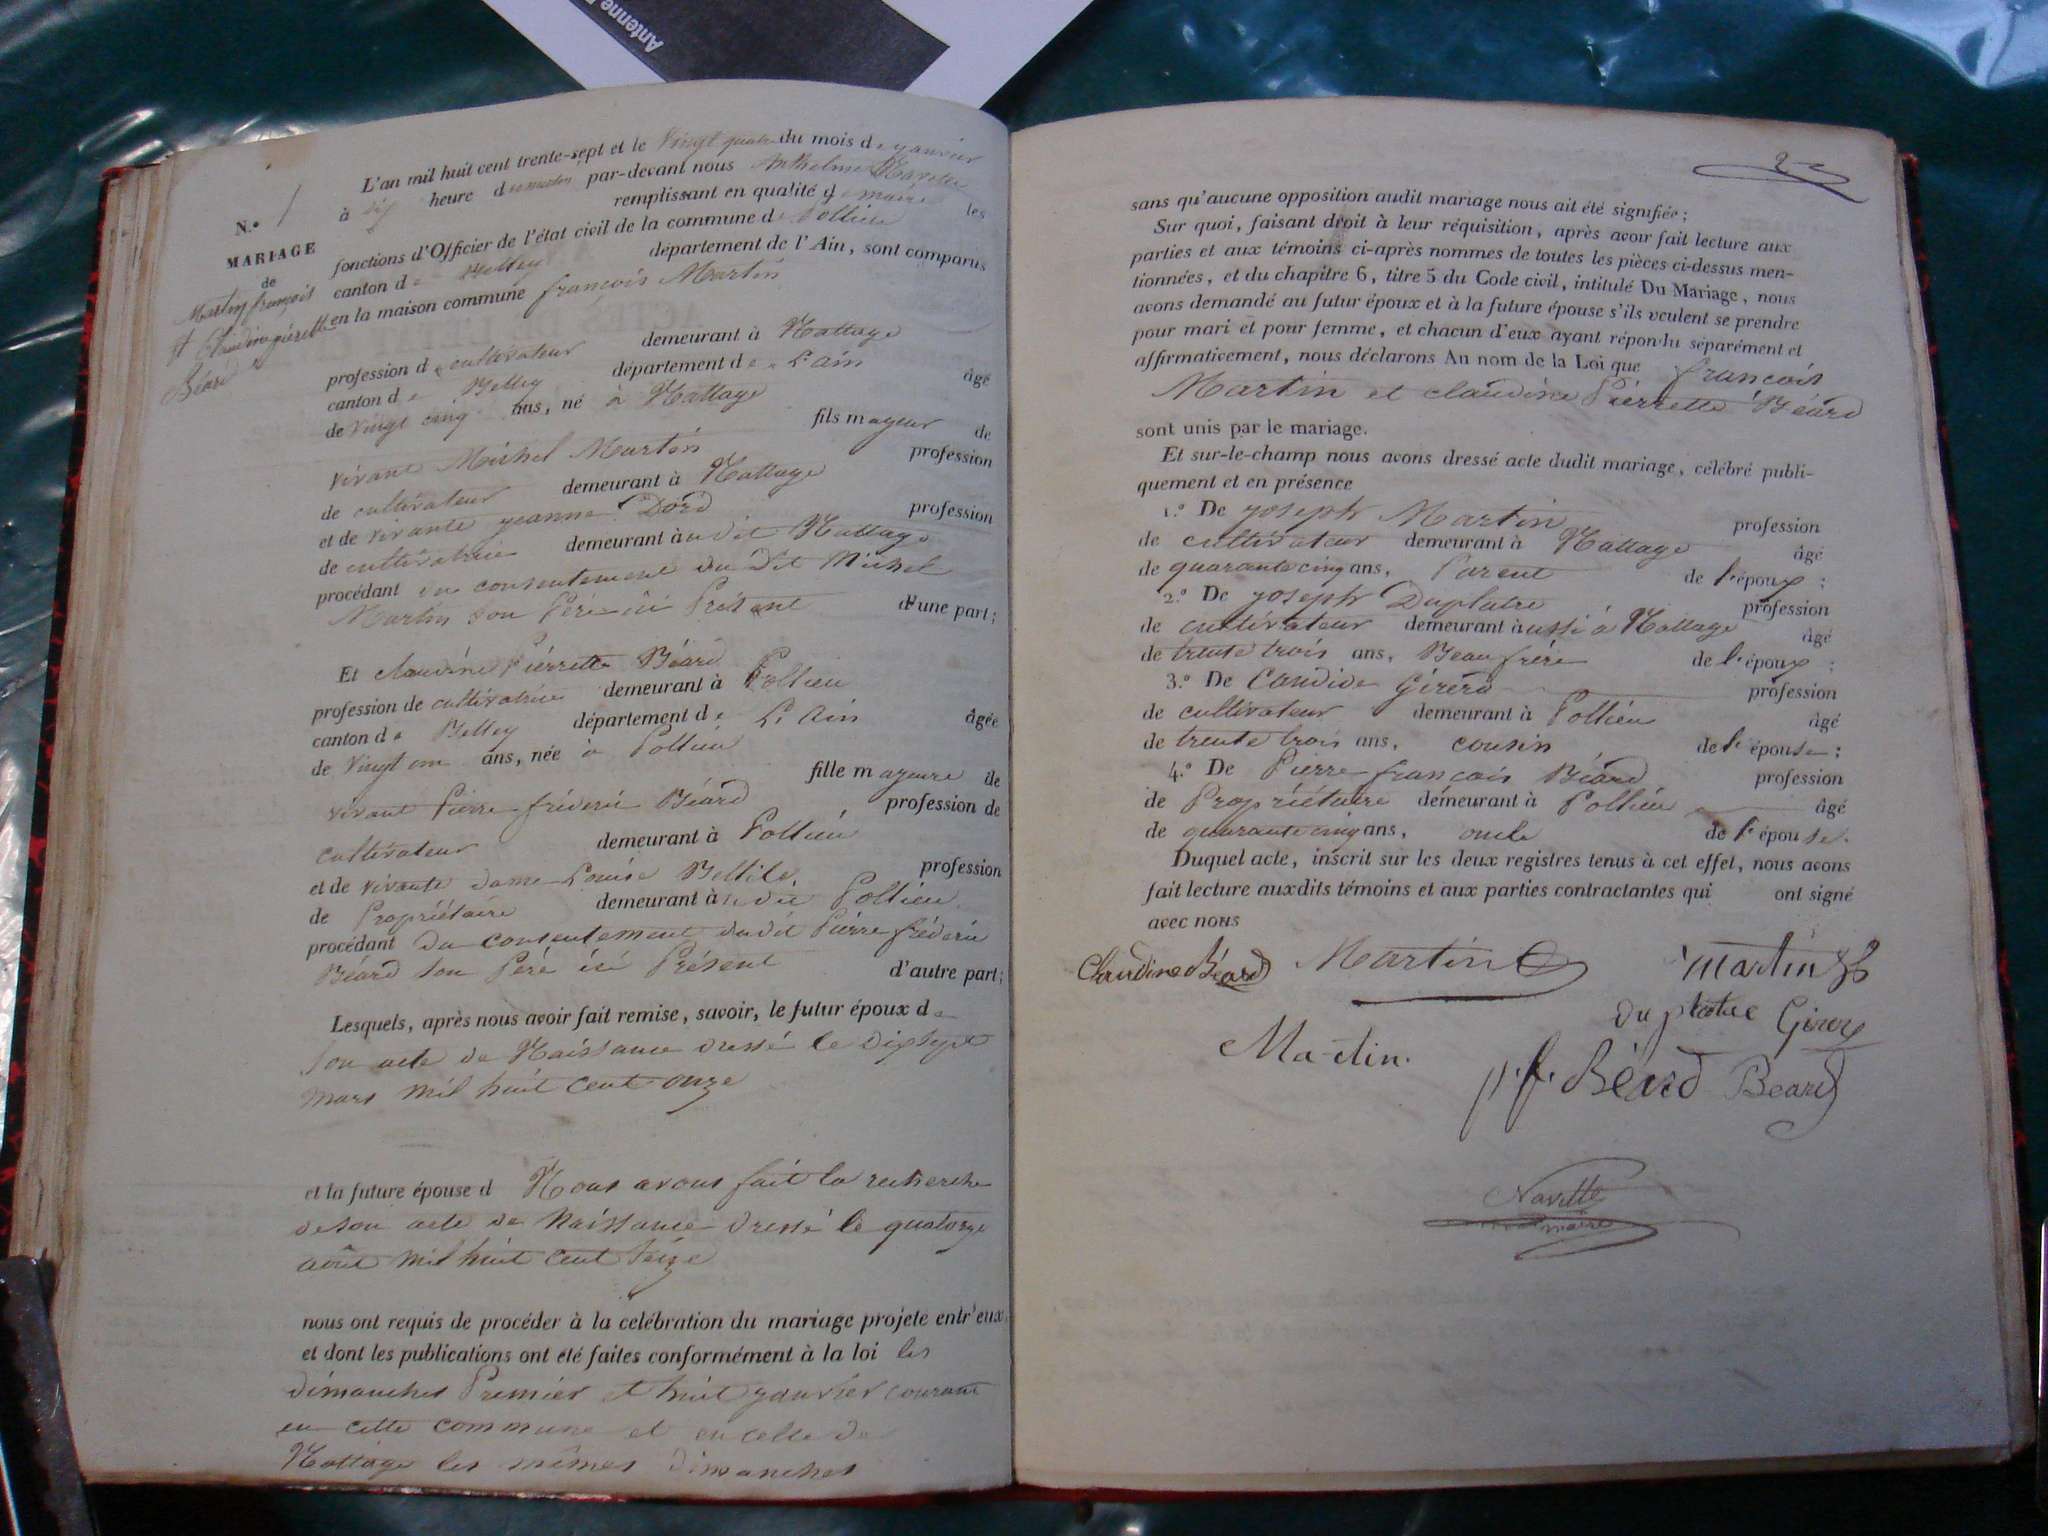 Antenne
N.º 1
MARIAGE
de
Martin françois
et Claudine piérette
Béard
L'an mil huit cent trente-sept et le vingt quatre du mois de janvier
à dix heure du matin, par-devant nous Anthelme Navette
remplissant en qualité de maire les
fonctions d'Officier de l'état civil de la commune de Pollieu
canton de Belley département de l'Ain, sont comparus
en la maison commune françois Martin
profession de cultivateur demeurant à Nattage
canton de Belley département de L'ain âgé
de vingt cinq ans, né à Nattage
fils mayeur de
vivant Michel Martin profession
de cultivateur demeurant à Nattage
et de vivante jeanne Dord profession
de cultivatrice demeurant àudit Nattage
procédant du consentement du Dit Michel
Martin son Pére ici Présent d'une part;
Et claudine Piérrette Béard
profession de cultivatrice demeurant à Pollieu
canton de Belley département de L'Ain âgée
de vingt un ans, née à Pollieu
fille mayeure de
vivant Pierre fréderic Béard profession de
cultivateur demeurant à Pollieu
et de vivante dame Louise Bellile profession
de Propriétaire demeurant à Pollieu
procédant Du consentement dudit Piérre fréderic
Béard son Pére ici Présent d'autre part;
Lesquels, après nous avoir fait remise, savoir, le futur époux de
son acte de Naissance dressé le Dixsept
mars mil huit cent onze
et la future épouse d Nous avons fait la recherche
de son acte de Naissance dressé le quatorze
août mil huit cent seize
nous ont requis de procéder à la celébration du mariage projeté entr'eux,
et dont les publications ont été faites conformément à la loi les
dimanches Premier et huit janvier courant
en cette commune et en celle de
Nattage les mêmes Dimanches
sans qu'aucune opposition audit mariage nous ait été signifiée;
Sur quoi, faisant droit à leur réquisition, après avoir fait lecture aux
parties et aux témoins ci-après nommes de toutes les pièces ci-dessus men-
tionnées, et du chapitre 6, titre 5 du Code civil, intitulé Du Mariage, nous
avons demandé au futur époux et à la future épouse s'ils veulent se prendre
pour mari et pour femme, et chacun d'eux ayant répondu séparément et
affirmativement, nous déclarons Au nom de la Loi que françois
Martin et claudine Piérrette Béard
sont unis par le mariage.
Et sur-le-champ nous avons dressé acte dudit mariage, célébré publi-
quement et en présence
1.º De joseph Martin profession
de cultivateur demeurant à Nattage âgé
de quarante cinq ans, Parent de l'époux;
2.º De joseph Duplatre profession
de cultivateur demeurant àussi à Nattage âgé
de trente trois ans, Beau frére de l'époux;
3.º De Candide Girerd profession
de cultivateur demeurant à Pollieu âgé
de trente trois ans, cousin de l'épouse;
4.º De Pierre françois Béard profession
de Propriétaire demeurant à Pollieu âgé
de quarante cinq ans, oncle de l'épouse.
Duquel acte, inscrit sur les deux registres tenus à cet effet, nous avons
fait lecture auxdits témoins et aux parties contractantes qui ont signé
avec nous
Claudine Béard Martin martin
du platre
Ma-tin. p.f. Béard Beard
Navette
maire